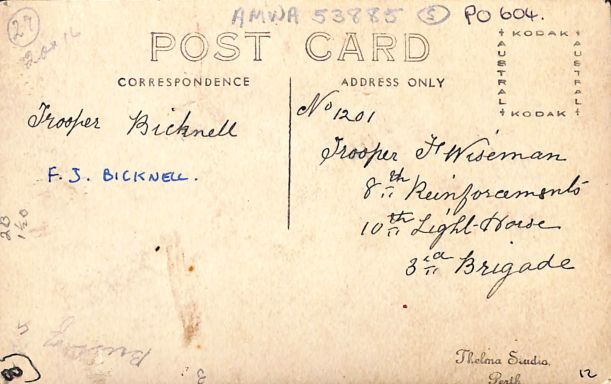 27
AMWA 53885 5 PO 604.
POST CARD
CORRESPONDENCE
ADDRESS ONLY
AUSTRAL
KODAK
AUSTRAL
KODAK
Trooper Bicknell
F. J. BICKNELL.
No 1201
Trooper F Wiseman
8th Reinforcements
10th Light Horse
3rd Brigade
Thelma Studio,
Perth
12
8